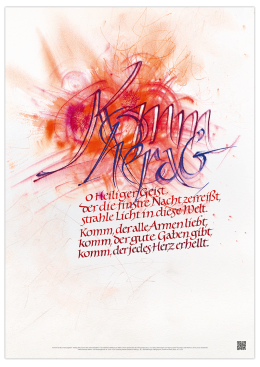 Komm,
herab
O Heiliger Geist,
der die finstre Nacht zerreißt,
strahle Licht in diese Welt.
Komm, der alle Armen liebt,
komm, der gute Gaben gibt,
komm, der jedes Herz erhellt.